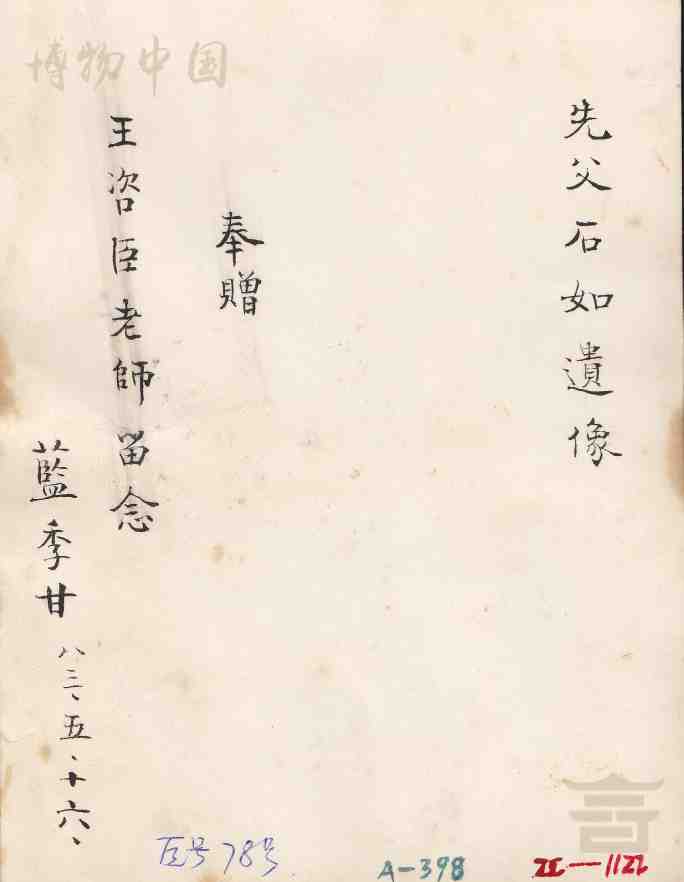 博物中国
先父石如遺像
奉贈
王咨臣老師留念
藍季甘
八三、五、十六、
巨号78号
A-398
II-1122